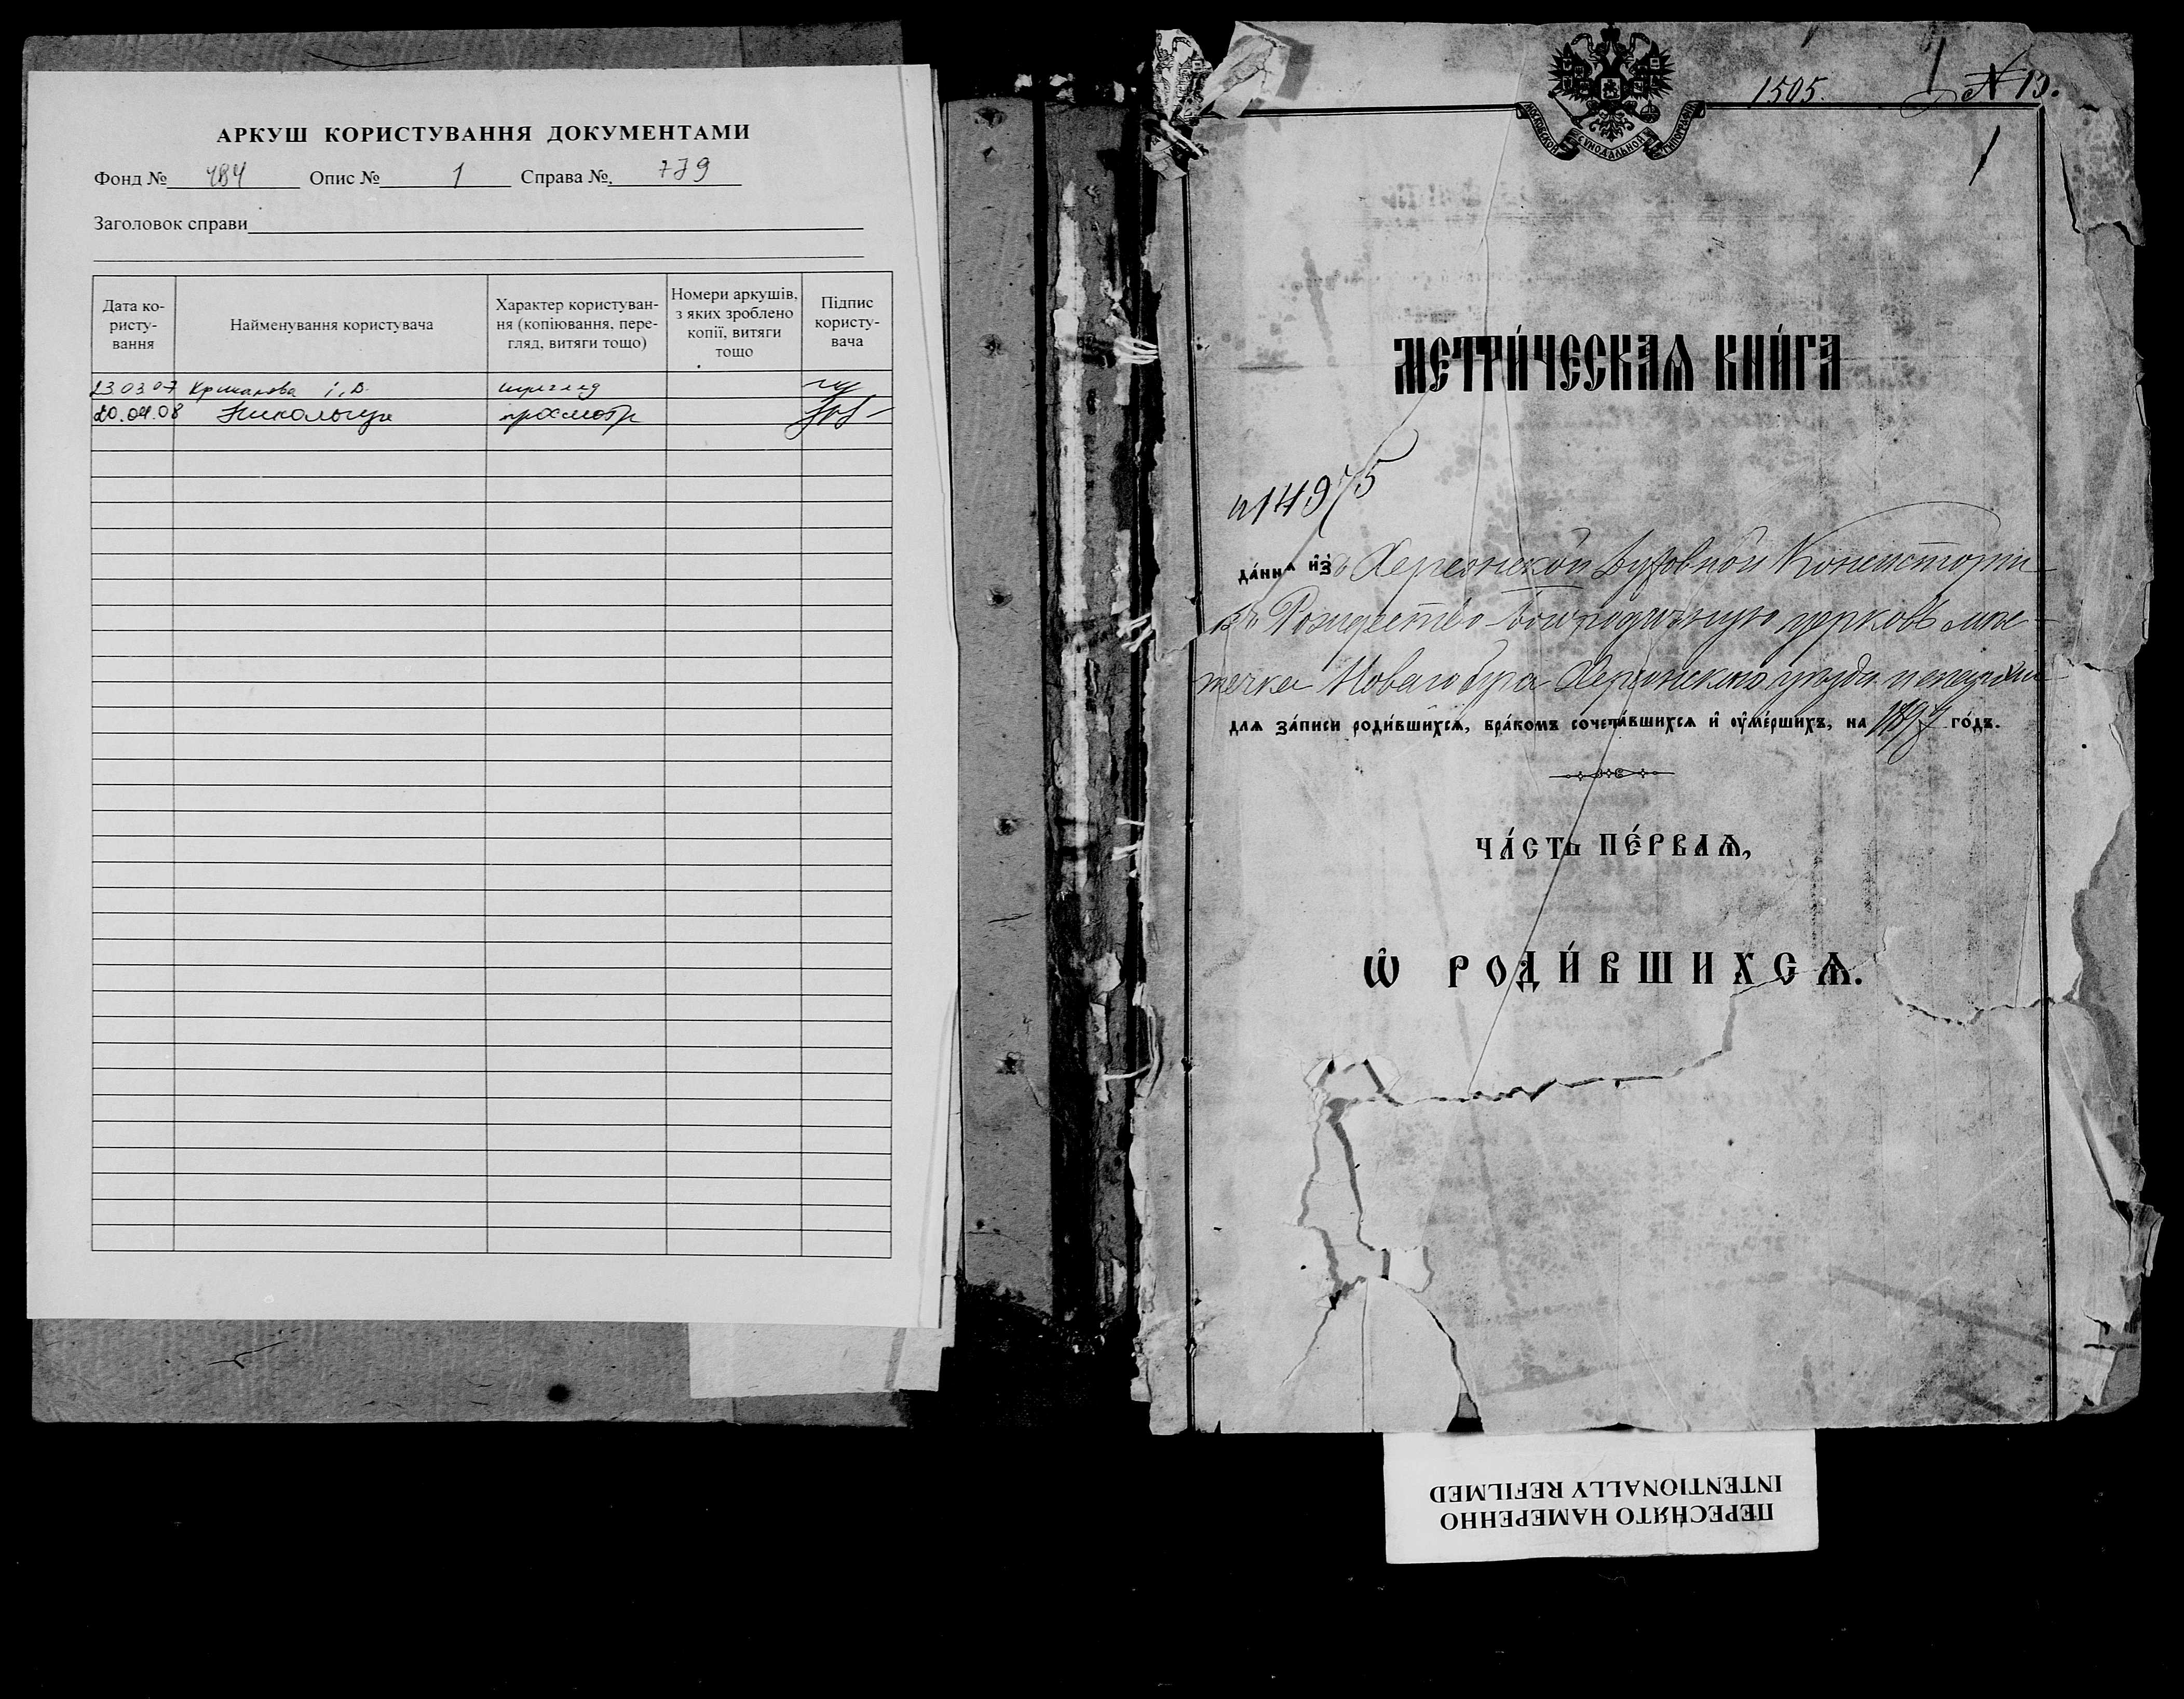 АРКУШ КОРИСТУВАННЯ ДОКУМЕНТАМИ
Фонд № 484 Опис № 1 Справа №. 779
Заголовок справи
Дата ко-
ристу-
вання
Найменування користувача
Характер користуван-
ня (копіювання, пере-
гляд, витяги тощо)
Номери аркушів,
з яких зроблено
копії, витяги
тощо
Підпис
користу-
вача
23.03.07 і.В. перегляд
20.04.08 просмотр
1505. № 13.
1
МОСКОВСКОЙ СѴНОДАЛЬНОЙ ТИПОГРАФІИ
МЕТРИ́ЧЕСКАѦ КНИ́ГА
№ 14975
да́нна и҆зъ Херсонской Духовной Консисторіи
въ Рождество-Богородичную церковь мѣс-
течка Новаго Буга Херсонскаго уѣзда и епархіи
для за́писи роди́вшихсѧ, бра́комъ сочета́вшихсѧ и҆ ᲂу҆ме́ршихъ, на 1897 го́дъ.
ЧА́СТЬ ПЕ́РВАѦ,
Ѽ РОДИ́ВШИХСѦ.
ПЕРЕСНЯТО НАМЕРЕННО
INTENTIONALLY REFILMED